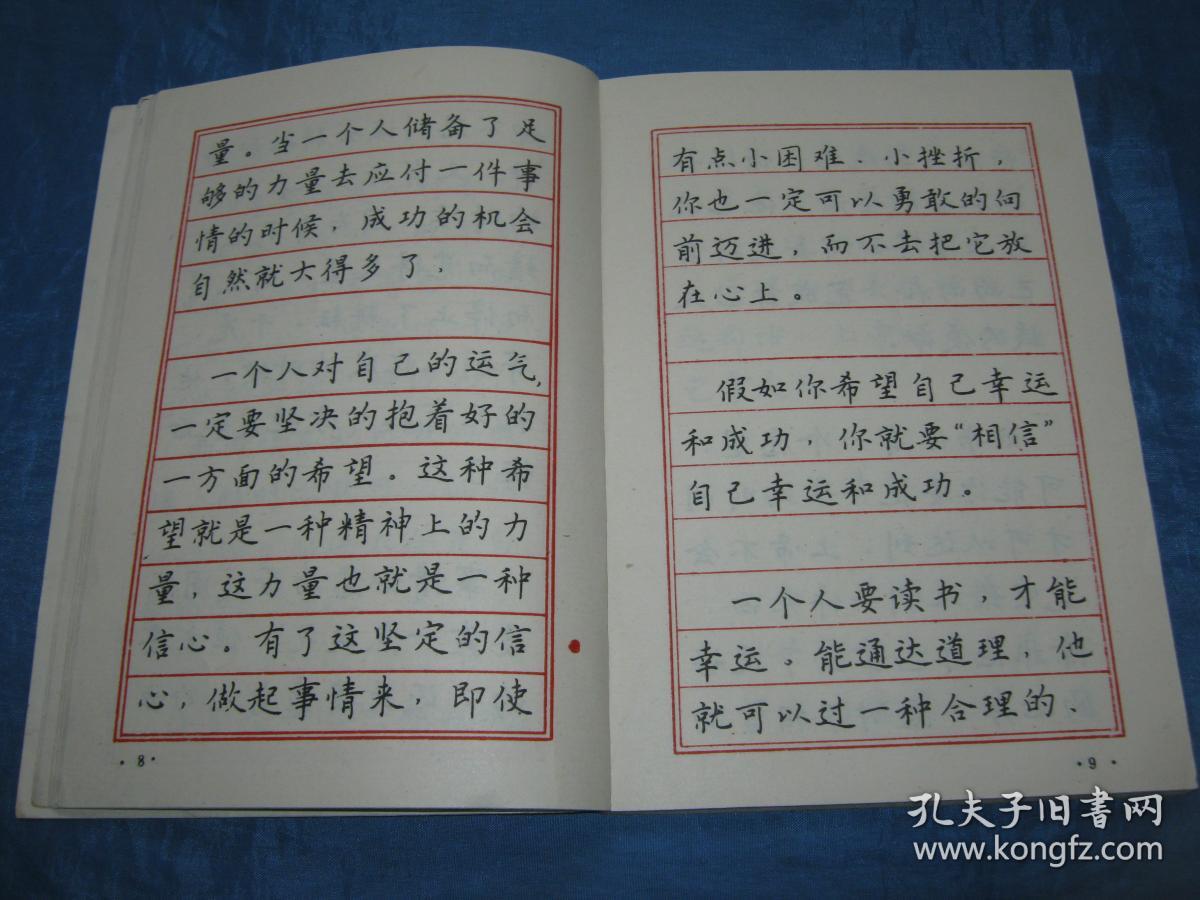 量。当一个人储备了足
够的力量去应付一件事
情的时候，成功的机会
自然就大得多了．
一个人对自己的运气，
一定要坚决的抱着好的
一方面的希望。这种希
望就是一种精神上的力
量，这力量也就是一种
信心。有了这坚定的信
心，做起事情来，即使
·8·
有点小困难、小挫折，
你也一定可以勇敢的向
前迈进，而不去把它放
在心上。
假如你希望自己幸运
和成功，你就要“相信”
自己幸运和成功。
一个人要读书，才能
幸运。能通达道理，他
就可以过一种合理的、
·9·
孔夫子旧书网
www.kongfz.com